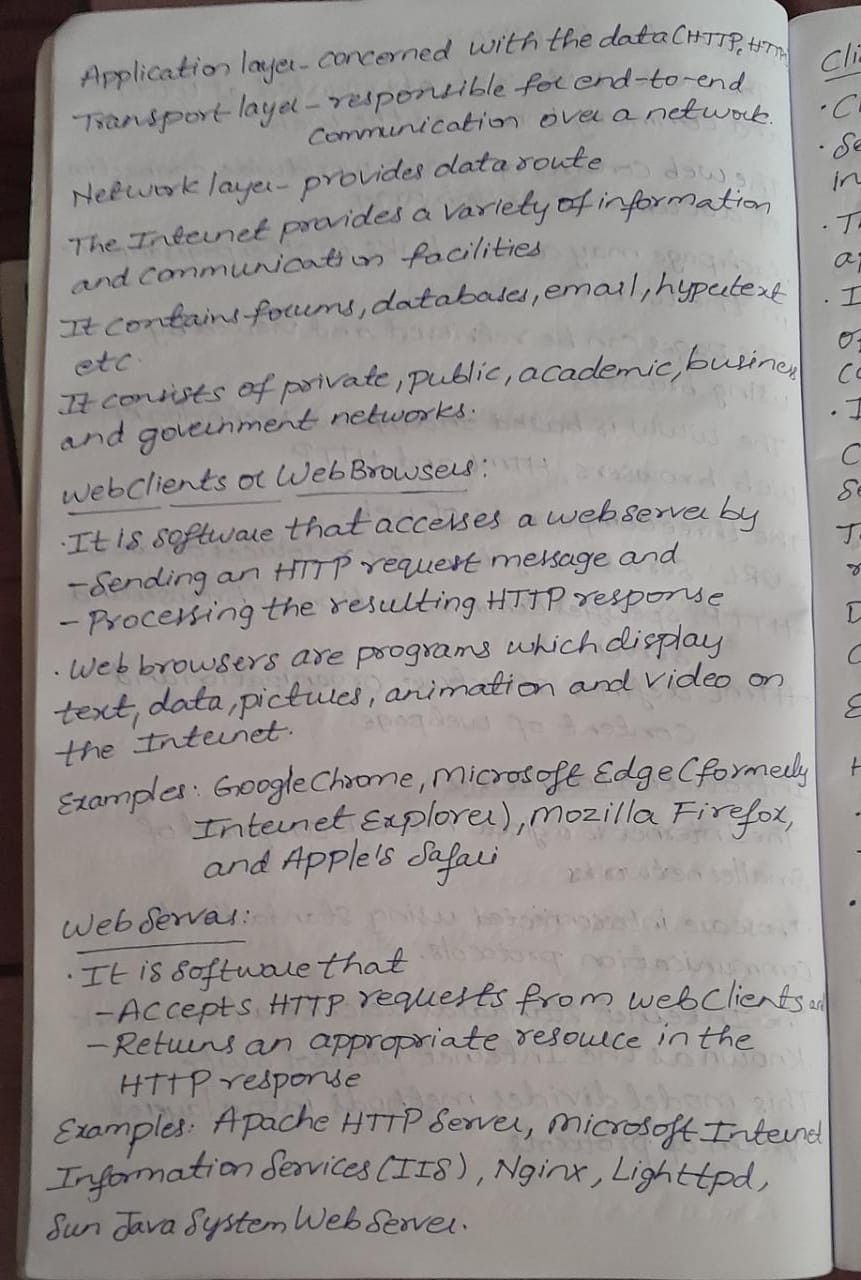 Application layer - concerned with the data (HTTP, HTTP
Transport layer - responsible for end-to-end
communication over a network.
Network layer - provides data route
The Internet provides a variety of information
and communication facilities
It contains forums, databases, email, hypertext
etc.
It consists of private, public, academic, business
and government networks.
Web Clients or Web Browsers:
·It is software that accesses a web server by
- Sending an HTTP request message and
- Processing the resulting HTTP response
· Web browsers are programs which display
text, data, pictures, animation and video on
the Internet.
Examples: Google Chrome, Microsoft Edge (formerly
Internet Explorer), Mozilla Firefox,
and Apple's Safari
Web Servar:
· It is software that
- Accepts HTTP requests from web Clients and
- Returns an appropriate resource in the
HTTP response
Examples: Apache HTTP Server, Microsoft Internet
Information Services (IIS), Nginx, Lighttpd,
Sun Java System Web Server.